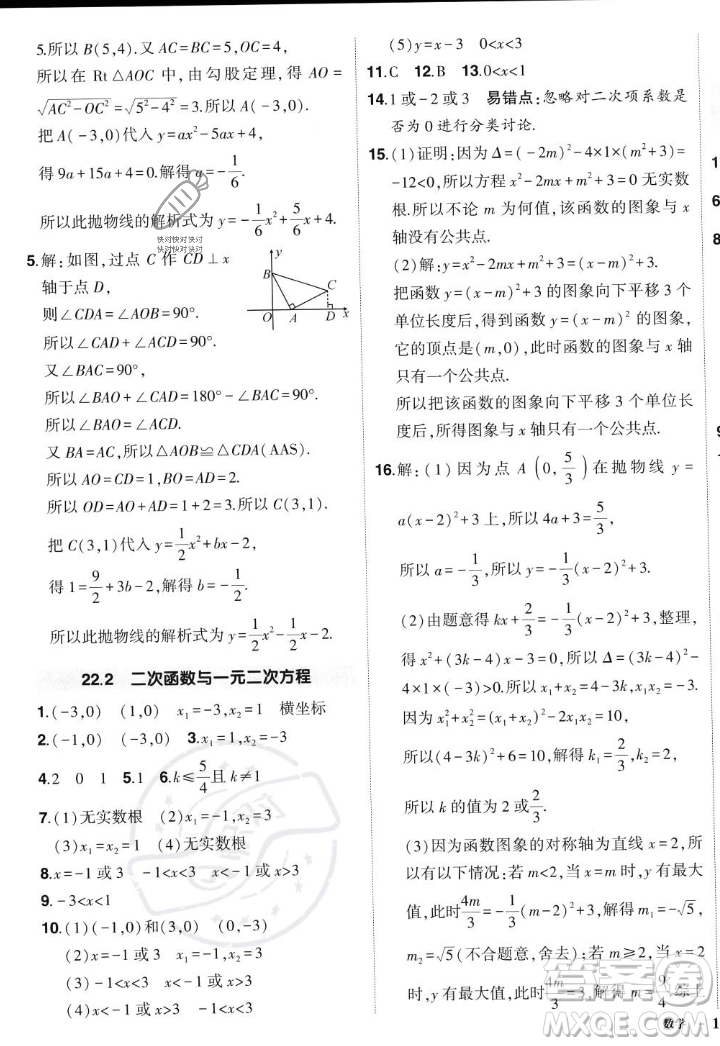 5.所以 B(5,4).又 AC=BC=5,OC=4,
所以在 Rt△AOC 中,由勾股定理,得 AO=
√(AC²-OC²)=√(5²-4²)=3.所以 A(-3,0).
把 A(-3,0)代入 y=ax²-5ax+4,
得 9a+15a+4=0.解得 a=-1/6.
所以此抛物线的解析式为 y=-1/6x²+5/6x+4.
快对快对快对
快对快对快对
5.解:如图,过点 C 作 CD⊥x
轴于点 D,
则∠CDA=∠AOB=90°.
又∠BAC=90°,
所以∠BAO+∠CAD=180°-∠BAC=90°.
所以∠BAO=∠ACD.
又 BA=AC,所以△AOB≌△CDA(AAS).
所以 AO=CD=1,BO=AD=2.
所以 OD=AO+AD=1+2=3.所以 C(3,1).
把 C(3,1)代入 y=1/2x²+bx-2,
得 1=9/2+3b-2,解得 b=-1/2.
所以此抛物线的解析式为 y=1/2x²-1/2x-2.
y
B
C
O
A
D
x
22.2 二次函数与一元二次方程
1.(-3,0) (1,0) x₁=-3,x₂=1 横坐标
2.(-1,0) (-3,0) 3.x₁=1,x₂=-3
4.2 0 1 5.1 6.k≤5/4且 k≠1
7.(1)无实数根 (2)x₁=-1,x₂=3
(3)x₁=x₂=1 (4)无实数根
8.x=-1 或 3 x<-1 或 x>3 -1<x<3
9.-3<x<1
10.(1)(-1,0)和(3,0) (0,-3)
(2)x=-1 或 3 x=-1 或 3
(3)-1<x<3 x<-1 或 x>3
(4)x<-1 或 x>3 -1<x<3
(5)y=x-3 0<x<3
11.C 12.B 13.0<x<1
14.1 或-2 或 3 易错点:忽略对二次项系数是
否为 0 进行分类讨论.
15.(1)证明:因为 Δ=(-2m)²-4×1×(m²+3)=
-12<0,所以方程 x²-2mx+m²+3=0 无实数
根.所以不论 m 为何值,该函数的图象与 x
轴没有公共点.
(2)解:y=x²-2mx+m²+3=(x-m)²+3.
把函数 y=(x-m)²+3 的图象向下平移 3 个
单位长度后,得到函数 y=(x-m)² 的图象,
它的顶点是(m,0),此时函数的图象与 x 轴
只有一个公共点.
所以把该函数的图象向下平移 3 个单位长
度后,所得图象与 x 轴只有一个公共点.
16.解:(1)因为点 A(0,5/3)在抛物线 y=
a(x-2)²+3 上,所以 4a+3=5/3.
所以 a=-1/3.所以 y=-1/3(x-2)²+3.
(2)由题意得 kx+2/3=-1/3(x-2)²+3,整理,
得 x²-(4-3k)x-3=0.
由根与系数的关系,得 x₁+x₂=4-3k,x₁x₂=-3.
因为 x₁²+x₂²=(x₁+x₂)²-2x₁x₂=10,
所以(4-3k)²+6=10.解得 k₁=2/3,k₂=2.
所以 k 的值为 2 或2/3.
(3)因为函数图象的对称轴为直线 x=2,所
以有以下情况:若 m<2,当 x=m 时,y 有最大
值,此时4m/3=-1/3(m-2)²+3,解得 m₁=-√5,
m₂=√5(不合题意,舍去);若 m≥2,当 x=2
时,y 有最大值,此时4m/3=3,解得 m=9/4.综上
数学
答案圈
MXQE.COM